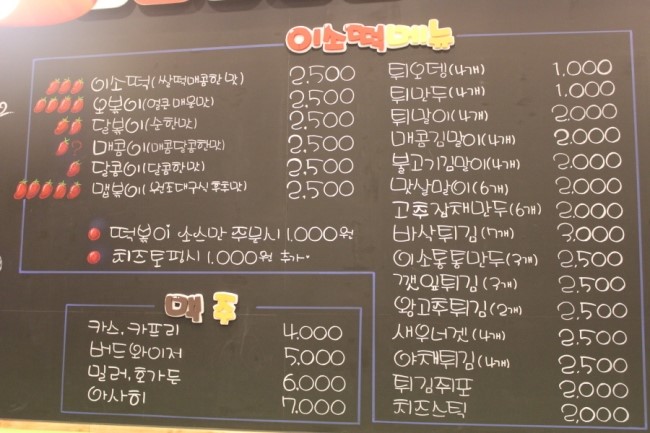 이소떡메뉴
이소떡(쌀떡매콤한맛) 2,500
오볶이(얼큰매운맛) 2,500
달볶이(순한맛) 2,500
매콤이(매콤달콤한맛) 2,500
달콤이(달콤한맛) 2,500
맵볶이(원조대구식후추맛) 2,500
떡볶이 소스만 주문시 1,000원
치즈토핑시 1,000원 추가
튀오뎅(4개) 1,000
튀만두(4개) 1,000
튀말이(4개) 2,000
매콤김말이(4개) 2,000
불고기김말이(4개) 2,000
맛살말이(6개) 2,000
고추잡채만두(6개) 2,000
바삭튀김(7개) 3,000
이소통통만두(3개) 2,500
깻잎튀김(3개) 2,500
왕고추튀김(2개) 2,500
새우너겟(4개) 2,500
야채튀김(4개) 2,500
튀김쥐포 2,000
치즈스틱 2,000
맥주
카스, 카프리 4,000
버드와이저 5,000
밀러, 호가든 6,000
아사히 7,000